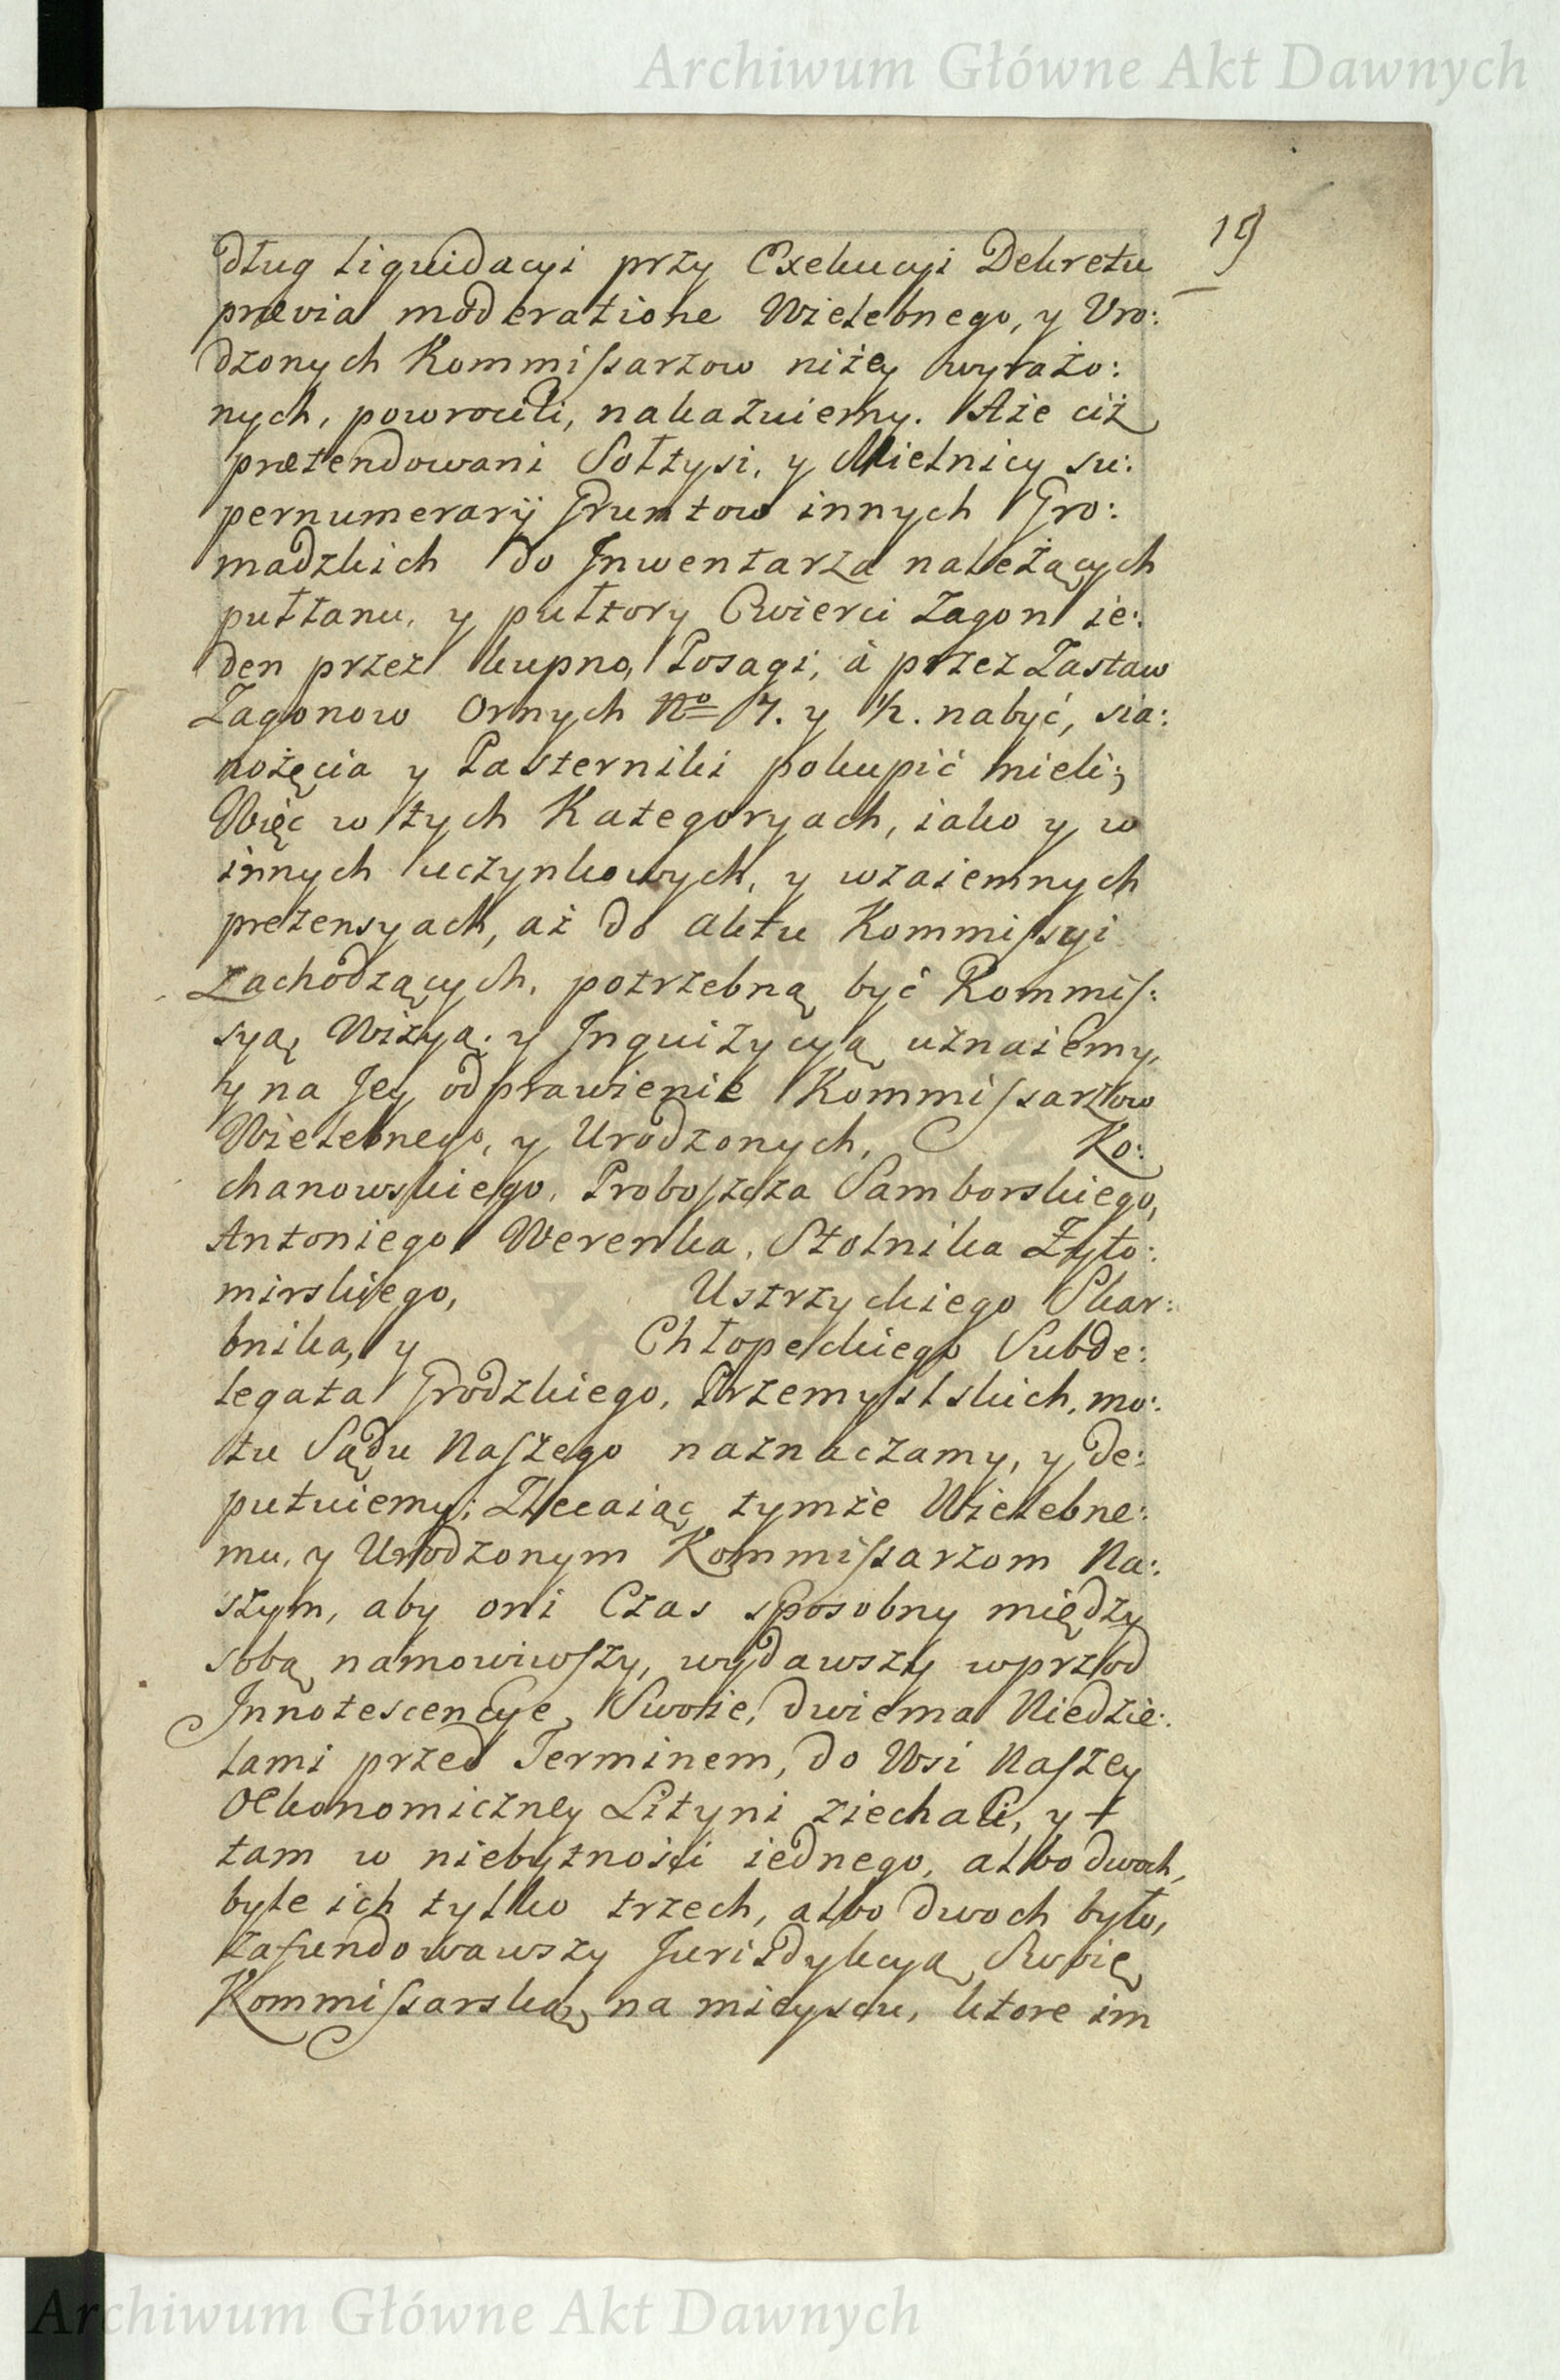 Archiwum Główne Akt Dawnych
19
dług liquidacyi przy Exekucyi Dekretu
prævia moderatione Wielebnego, y Uro:
dzonych Kommiſsarzow niżey wyrażo:
nych, powrocili, nakazuiemy. Aże ciż
prætendowani Sołtysi, y Mielnicy su:
pernumerarij Gruntow innych Gro:
madzkich do Inwentarza należących
pułłanu, y pułtory Cwierci Zagon ie:
den przez kupno, Posagi, à przez Zastaw
Zagonow Ornych No 7. y 1/2. nabyć, sia:
nożęcia y Pasterniki pokupić mieli;
Więc w tych Kategoryach, iako y w
innych uczynkowych, y wzaiemnych
pretensyach, aż do aktu Kommiſsyi
zachodzących, potrzebną być Kommiſ:
syą, Wizyą, y Inquizycyą uznaiemy,
y na Jey odprawienie Kommiſsarzow
Wielebnego, y Urodzonych, Ko:
chanowskiego, Proboſzcza Samborskiego,
Antoniego Werenka, Stolnika Żyto:
mirskiego, Ustrzyckiego Skar:
bnika, y Chłopeckiego Subde:
legata Grodzkiego, Przemyslskich, mo:
tu Sądu Naſzego naznaczamy, y de:
putuiemy; Zlecaiąc tymże Wielebne:
mu, y Urodzonym Kommiſsarzom Na:
szym, aby oni Czas sposobny między
sobą namowiwſzy, wydawszy wprzod
Innotescencye Swoie, dwiema Niedzie:
lami przed Terminem, do Wsi Naſzey
Oekonomiczney Lityni ziechali, y t
tam w niebytności iednego, albo dwoch,
byle ich tylko trzech, albo dwoch było,
zafundowawszy Jurizdykcyą Swoię
Kommiſsarską, na mieyscu, ktore im
Archiwum Główne Akt Dawnych